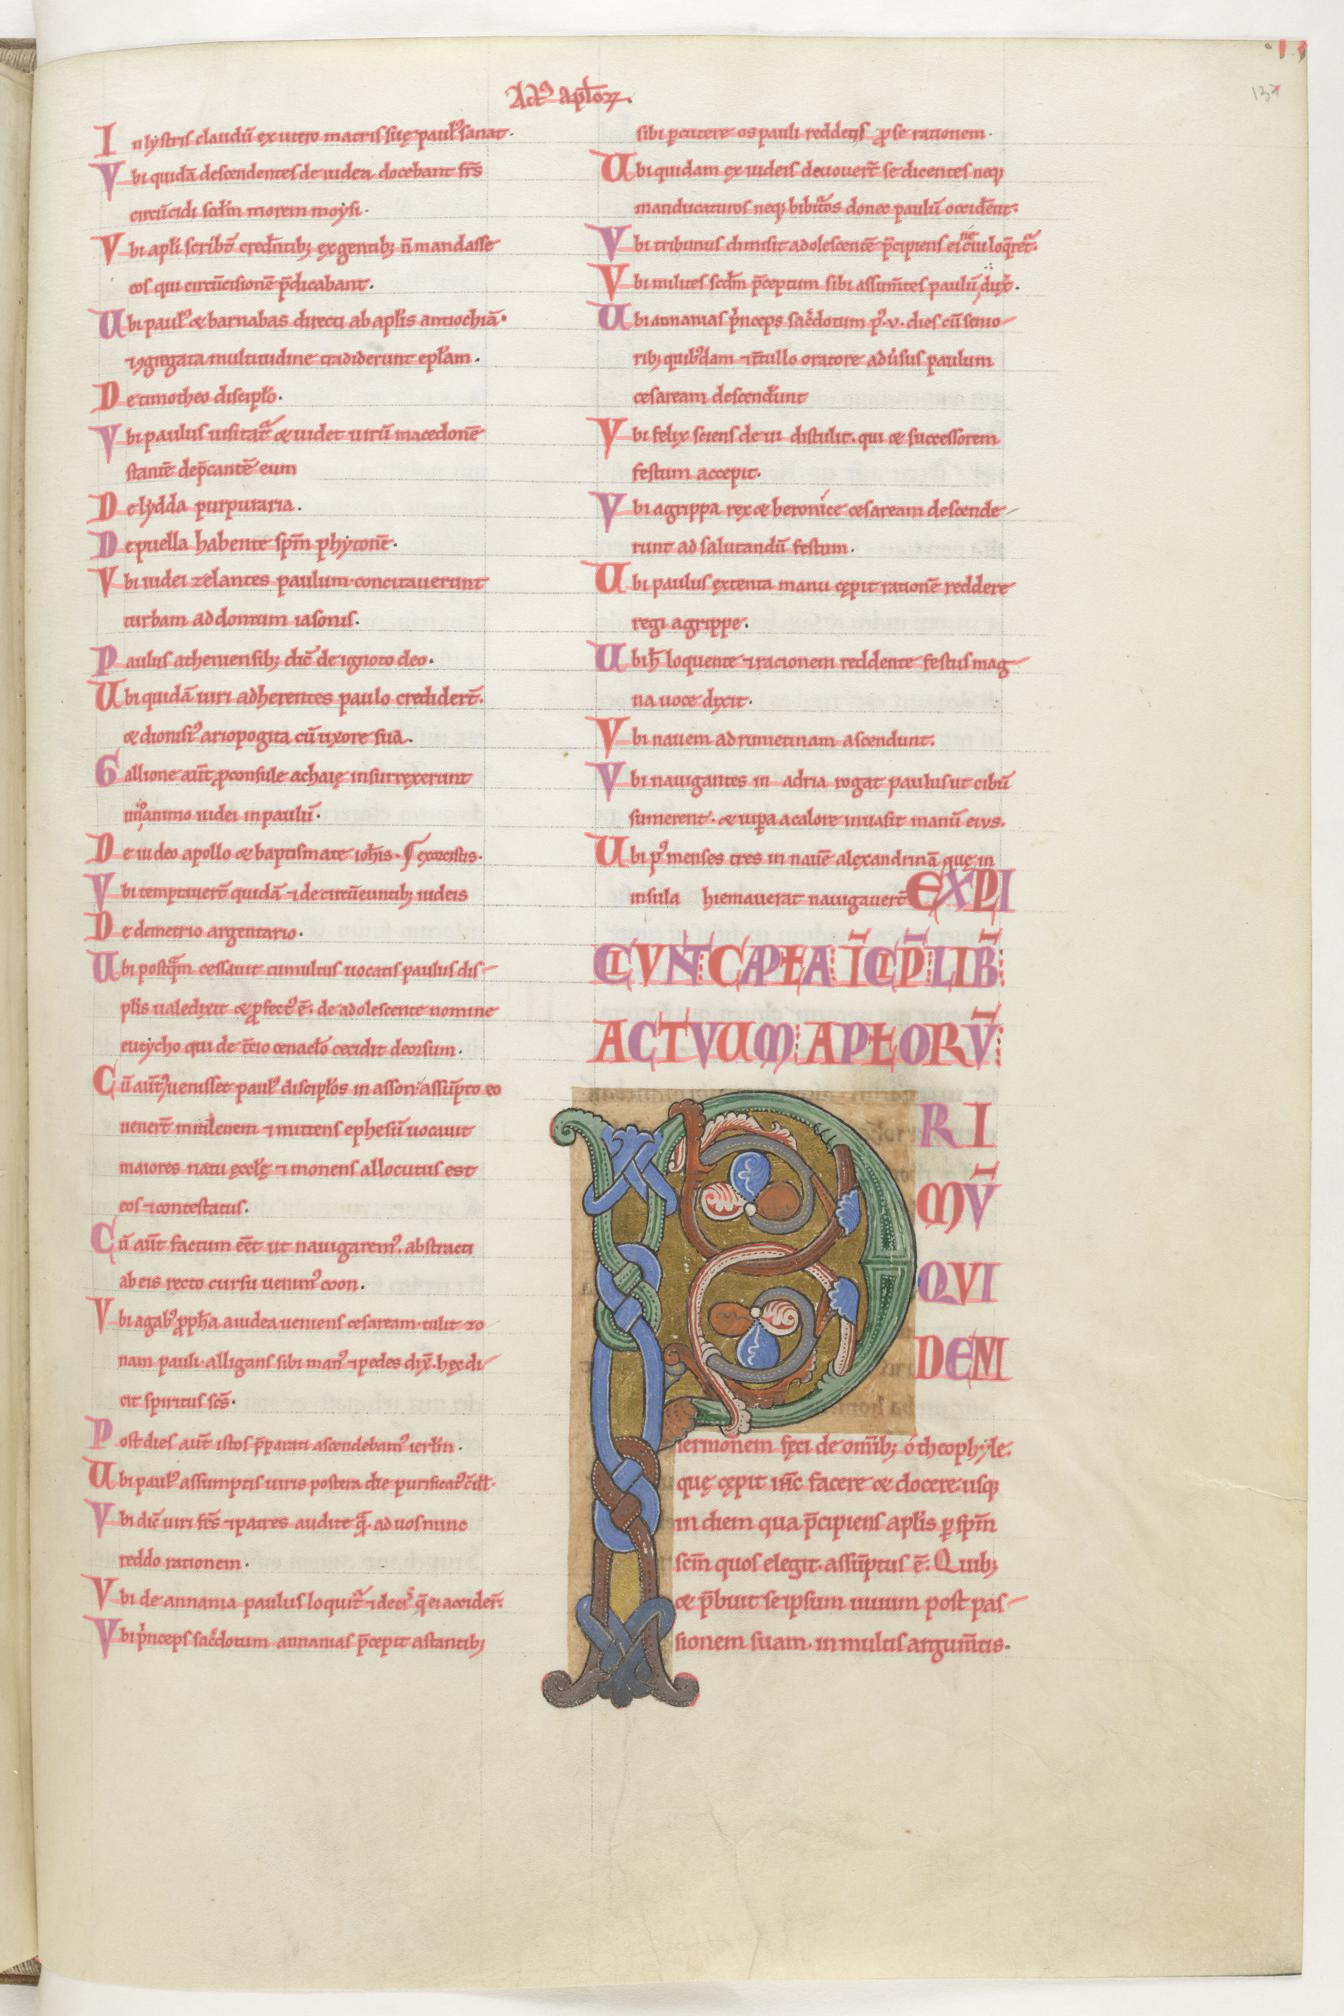 Act᷒ apl̄oꝝ.
In lystris claudū ex utero matris suę paul᷒ sanat.
Vbi quidā descendentes de iudea docebant fr̄s
circūcidi scd̄m morem moysi.
Vbi apl̄i scribt̄ credn̄tib; ex gentib; n̄ mandasse
eos qui circūcisionē p̄dicabant.
Ubi paul᷒ & barnabas directi ab apl̄is antiochiā.
ꝯgregata multitudine tradiderunt epl̄am.
De timotheo discipl̄o.
Vbi paulus uisitat̄ & uidet uirū macedonē
stantē dep̄cantē eum
De lydda purpuraria.
De puella habente sp̄m phytonē.
Vbi iudei zelantes paulum concitauerunt
turbam ad domum iasonis.
Paulus atheniensib; dic̄ de ignoto deo.
Ubi quidā uiri adherentes paulo credider̄t.
& dionisi᷒ ariopogita cū uxore sua.
Gallione aūt ꝓconsule achaię insurrexerunt
uno animo iudei in paulū.
De iudeo apollo & baptismate ioh̄is. exorcistis.
Vbi temptauer̄t quidā ⁊ de circūeuntib; iudeis
De demetrio argentario.
Ubi postq̄m cessauit tumultus uocatis paulus dis-
plis ualedixit & ꝓfect᷒ ē. de adolescente nomine
eutycho qui de t̄cio cenacl̄o cecidit deorsum.
Cū aūt uenisset paul᷒ discipl̄os in asson. assūpto eo
uener̄t mitilenem & mittens ephesū uocauit
maiores natu ęccl̄ę ⁊ monens allocutus est
eos ⁊ contestatus.
Cū aūt factum eēt ut nauigarem᷒. abstracti
ab eis recto cursu uenim᷒ coon.
Vbi agab᷒ ꝓph̄a a iudea ueniens cesaream. tulit zo
nam pauli. alligans sibi man᷒ ⁊ pedes dix̄. hęc di-
cit spiritus sc̄s.
Post dies aūt istos p̄parati ascendebam᷒ ierl̄m.
Ubi paul᷒ assumptis uiris postera die purificat᷒ c̄ ill̄.
Vbi dic̄ uiri fr̄s ⁊ patres audite q̄. ad uos nunc
reddo rationem.
Vbi de annania paulus loquit̄ ⁊ de eis q̄ ei accider̄t.
Vbi p̄nceps sac̄dotum annanias p̄cepit astantib;
sibi pcutere os pauli reddent̄ ꝓ se rationem.
Ubi quidam ex iudeis deuouer̄t se dicentes neq;
manducaturos neq; bibit᷒os donec paulū occider̄ent.
Vbi tribunus dimisit adolescentē p̄cipiens ei ne cui loq̄ret̄.
Vbi milites scd̄m p̄ceptum sibi assum̄tes paulū, dux̄t.
Ubi annanias p̄nceps sac̄dotum p᷒. v. dies cū senio-
rib; quib᷒dam ⁊ t̄tullo oratore adūsus paulum
cesaream descendr̄unt
Vbi felix sciens de ui distulit. qui & successorem
festum accepit.
Vbi agrippa rex & beronice cesaream descende-
runt ad salutandū festum.
Ubi paulus extenta manu cępit rationē reddere
regi agrippe.
Ubi h̄ loquente ⁊ racionem reddente festus mag-
na uoce dixit.
Vbi nauem adrumetinam ascendunt.
Vbi nauigantes in adria rogat paulus ut cibū
sumerent. & uip̄a a calore inuasit manū eius.
Ubi p᷒ menses tres in nauē alexandrinā que in
insula hiemauerat nauigauer̄t EXPLI
CIUNT CAPŁA ĪCIP̄ LIB̄
ACTVUM APŁORV̄
PRI
MV̄
QVI
DEM
sermonem fęci de om̄ib; ó theophyle.
quę cępit iħc facere & docere usq;
in diem qua p̄cipiens apl̄is ꝑ sp̄m
sc̄m quos elegit. assūptus ē. Quib;
& p̄buit seipsum uiuum post pas-
sionem suam. in multis argum̄tis.